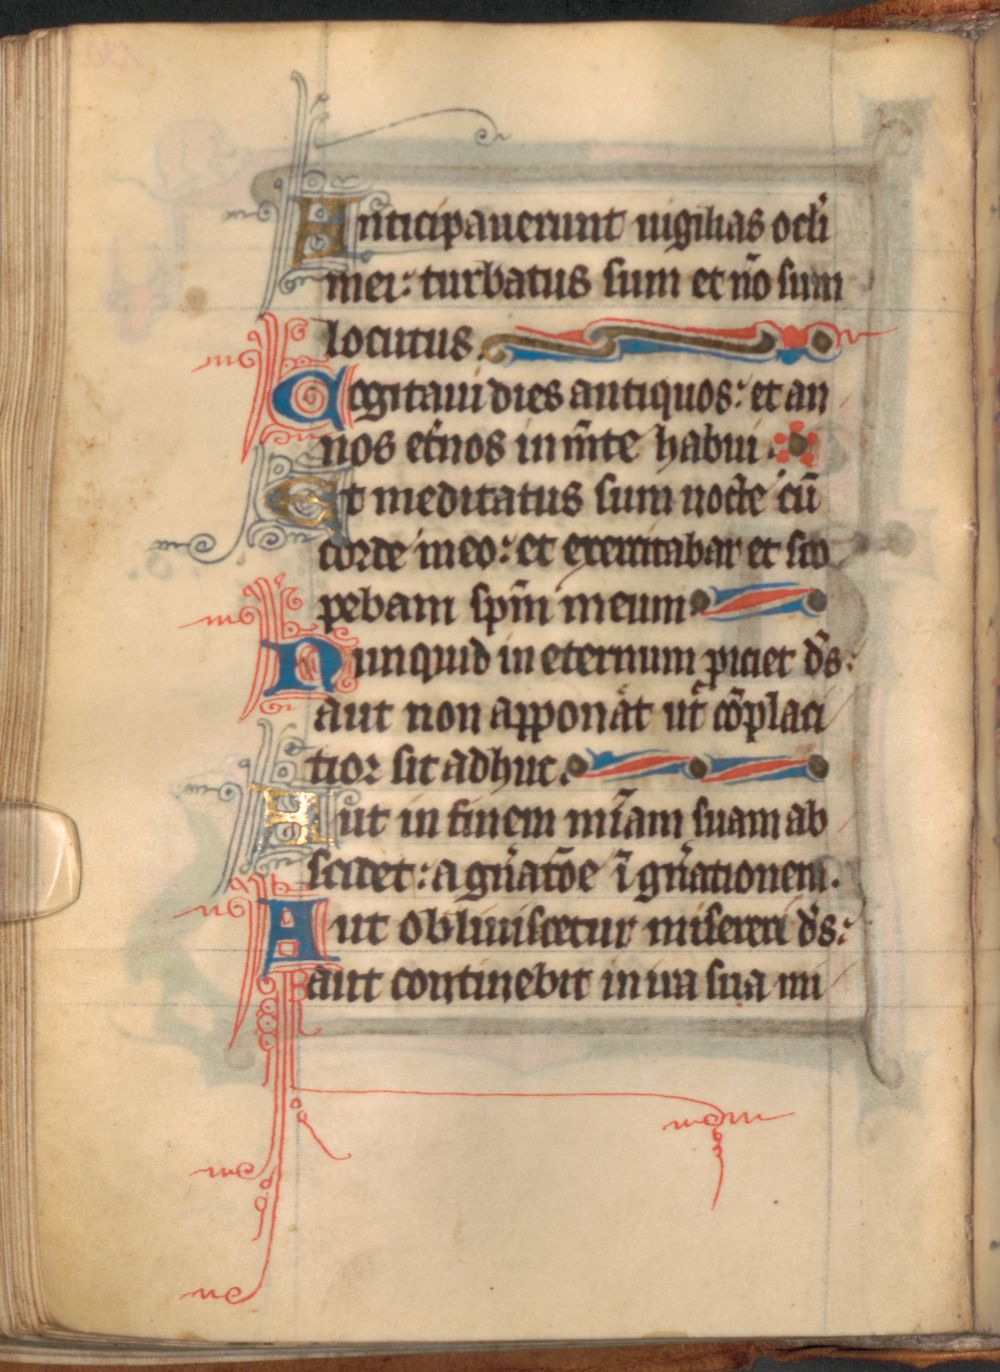 Anticipauerunt uigilias ocl̃i
mei: turbatus sum et nõ sum
locutus.
Cogitaui dies antiquos: et an
nos et̃nos in m̃te habui.
Et meditatus sum nocte cũ
corde meo: et exercitabar et sco
pebam sp̃m meum
Nunquid in eternum ꝓiciet d̃s:
aut non apponat ut cõplaci
tior sit adhuc.
Aut in finem mĩam suam ab
scidet: a gñatõe ĩ gñationem.
Aut obliuiscetur misereri d̃s:
aut continebit in ira sua mi